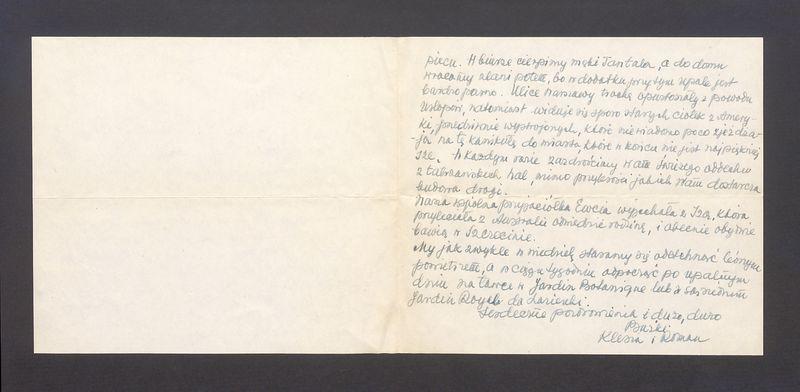 piecu. W biurze cierpimy męki Tantala, a do domu
wracamy zlani potem, bo w dodatku przy tym upale jest
bardzo parno. Ulice Warszawy trochę opustoszały z powodu
urlopów, natomiast widuje się sporo starych ciotek z Amery-
ki, przedziwnie wystrojonych, które nie wiadomo poco zjeżdża-
ją na tę kanikułę do miasta które w końcu nie jest najpiękniej
sze. W każdym razie zazdrościmy Wam świeżego oddechu
z tatrzańskich hal, mimo przykrości jakich Wam dostarcza
budowa drogi.
Nasza wspólna przyjaciółka Ewcia wyjechała z Izą, która
przyleciała z Australii odwiedzić rodzinę, i obecnie obydwie
bawią w Szczecinie.
My jak zwykle w niedzielę staramy się odetchnąć leśnym
powietrzem, a w ciągu tygodnia odpocząć po upalnym
dniu na ławce w Jardin Botanique lub w sąsiednim
Jardin Royale de Łazienki.
Serdeczne pozdrowienia i dużo, dużo
Buźki
i Roman